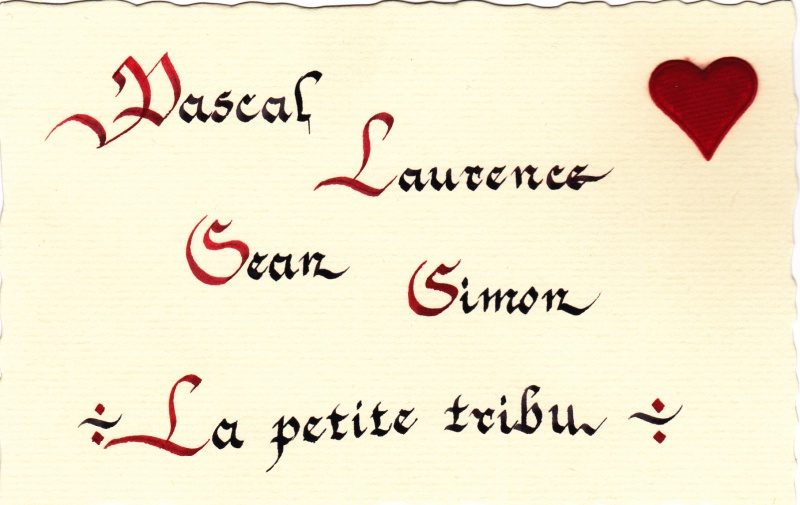 Pascal
Laurence
Sean
Simon
La petite tribu